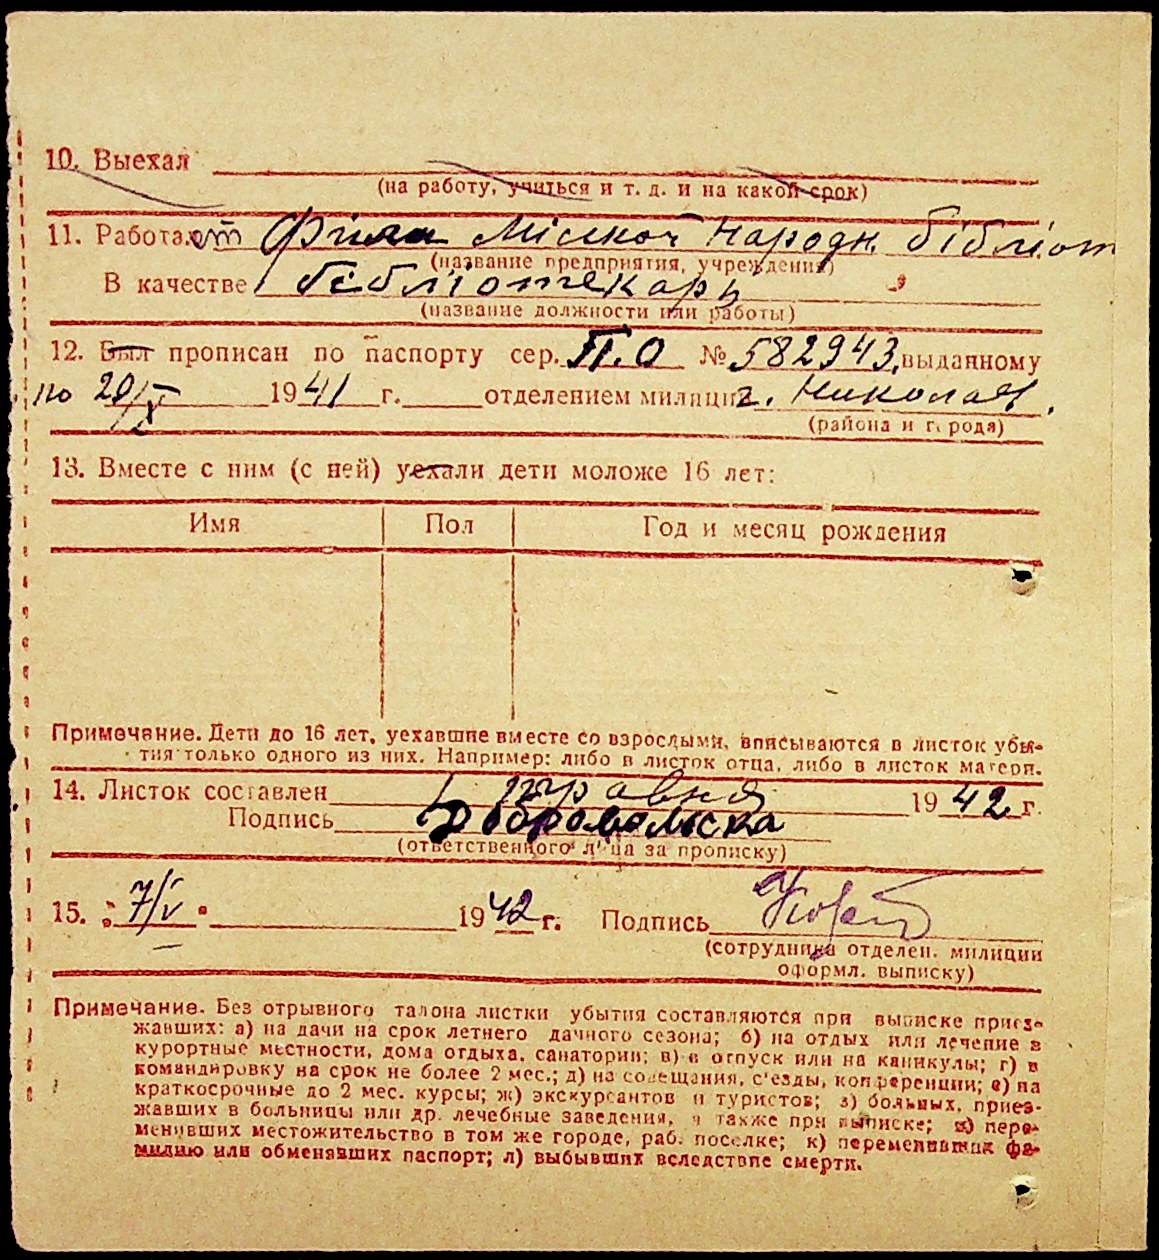 10. Выехал
(на работу, учиться и т. д. и на какой срок)
11. Работа ет Філія Міської Народн. бібліот
(название предприятия, учреждения)
В качестве бібліотекарь
(название должности или работы)
12. Был прописан по паспорту сер. П.О № 582943, выданному
по 20/V 1941 г. отделением милиции г. Николаев.
(района и города)
13. Вместе с ним (с ней) уехали дети моложе 16 лет:
Имя Пол Год и месяц рождения
Примечание. Дети до 16 лет, уехавшие вместе со взрослыми, вписываются в листок убы-
тия только одного из них. Например: либо в листок отца, либо в листок матери.
14. Листок составлен 6 травня 1942 г.
Подпись Добровольска
(ответственного лица за прописку)
15. „7/V" 1942 г. Подпись
(сотрудника отделен. милиции
оформл. выписку)
Примечание. Без отрывного талона листки убытия составляются при выписке приез-
жавших: а) на дачи на срок летнего дачного сезона; б) на отдых или лечение в
курортные местности, дома отдыха, санатории; в) в отпуск или на каникулы; г) в
командировку на срок не более 2 мес.; д) на совещания, с'езды, конференции; е) на
краткосрочные до 2 мес. курсы; ж) экскурсантов и туристов; з) больных, приез-
жавших в больницы или др. лечебные заведения, а также при выписке; и) пере-
менивших местожительство в том же городе, раб. поселке; к) переменивших фа-
милию или обменявших паспорт; л) выбывших вследствие смерти.